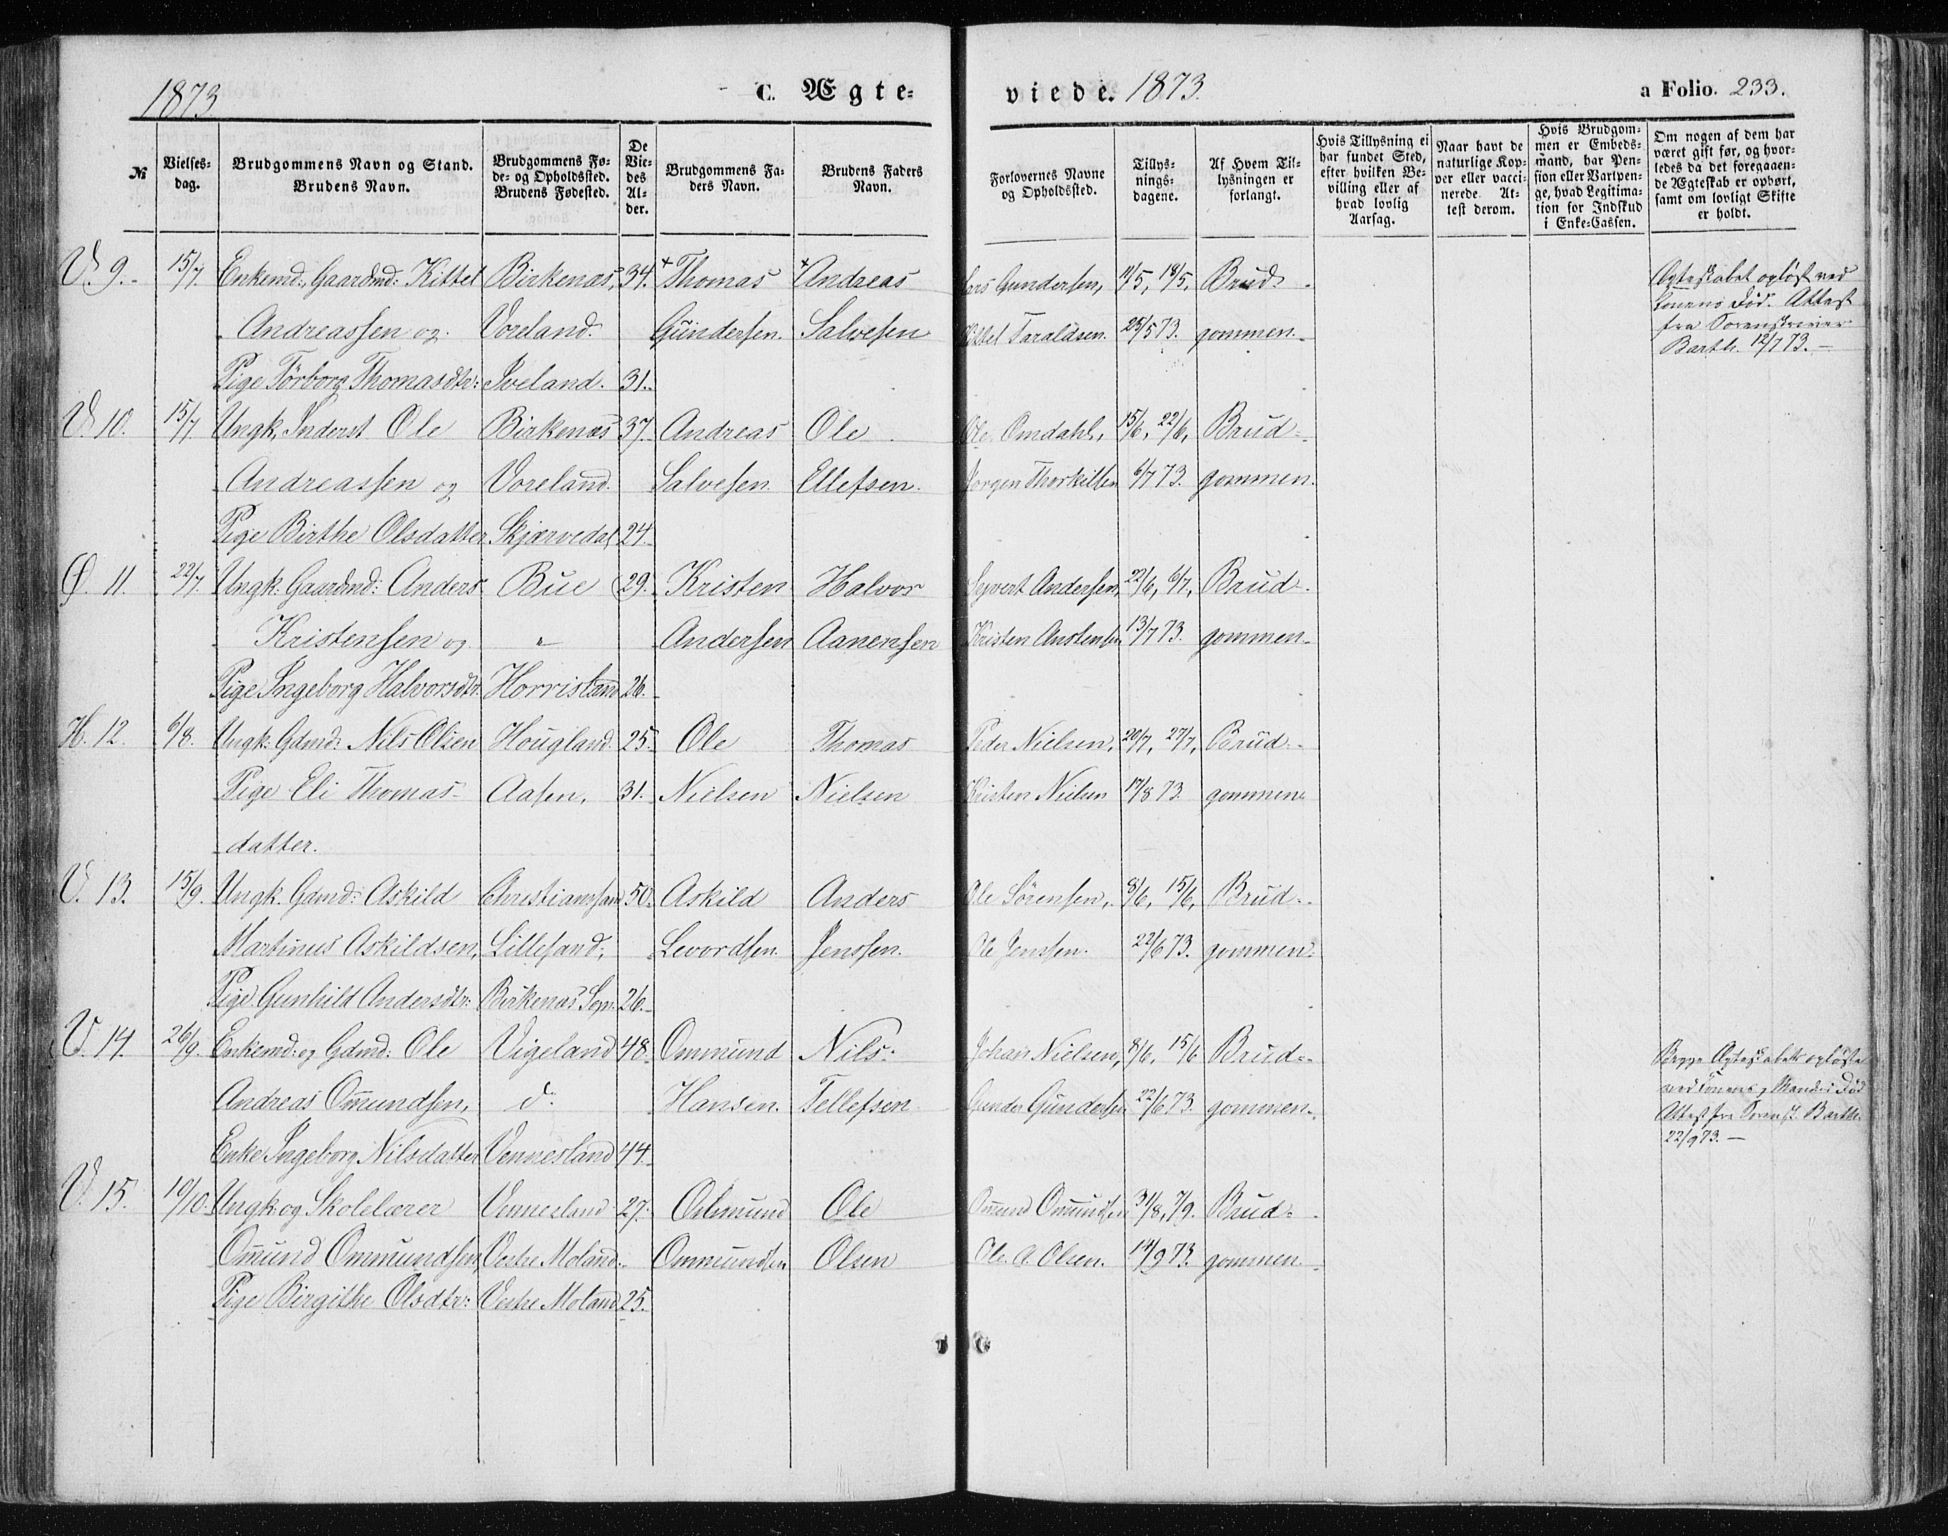 1873. C. Ægteviede. 1873. a Folio. 233.
№
Vielsesdag.
Brudgommens Navn og Stand. Brudens Navn.
Brudgommens Føde- og Opholdssted. Brudens Fødested.
De Viedes Alder.
Brudgommens Faders Navn.
Brudens Faders Navn.
Forlovernes Navne og Opholdssted.
Tillysningsdagene.
Af Hvem Tillysningen er forlangt.
Hvis Tillysning ei har fundet Sted, efter hvilken Bevilling eller af hvad lovlig Aarsag.
Naar havt de naturlige Kopper eller vaccinerede. Attest derom.
Hvis Brudgommen er Embedsmand, har Pension eller Vartpenge, hvad Legitimation for Indskud i Enke-Cassen.
Om nogen af dem har været gift før, og hvorledes da det foregaaende Ægteskab er ophørt, samt om lovligt Skifte er holdt.
V. 9. 15/7. Enkemd: Gaardmd: Kittel Birkenæs, 34. +Thomas +Andreas Lars Gundersen, 11/5, 18/5, Brud- Ægteskabet opløst ved
Andreassen og Voreland. Gundersen. Salvesen Kittel Taraldsen. 25/5 73. gommen. Konens Død. Attest
fra Sorenskriver
Pige Torborg Thomasdtr: Iveland. 31. Barth. 12/7 73.—
V. 10. 15/7 Ungk, Inderst Ole Birkenæs 37. Andreas Ole Ole Omdahl, 15/6, 22/6, Brud-
Andreassen og Voreland. Salvesen. Ellefsen. Jorgen Thorkilsen 6/7 73. gommen.
Pige Birthe Olsdatter Skjærvedal 24.
Ø. 11. 22/7. Ungk: Gaardmd: Anders Bue 29. Kristen Halvor Syvert Andersen, 22/6, 6/7, Brud-
Kristensen og " Andersen Aanensen Kristen Anstensen 13/7 73. gommen.
Pige Ingeborg Halvorsdtr: Horrisland 26.
H. 12. 6/8. Ungk: Gdmd: Nils Olsen Hougland. 25. Ole Thomas Peder Nielsen, 20/7, 27/7, Brud-
Pige Eli Thomas- Aasen, 31. Nielsen Nielsen Kristen Nielsen 17/8 73. gommen.
datter.
V. 13. 15/9. Ungk. Gdmd: Askild Christianssand 50. Askild Anders Ole Sørensen, 8/6, 15/6, Brud-
Martinus Askildsen, Lillesand; Levordsen. Jenssen. Ole Jenssen. 22/6 73. gommen.
Pige Gunhild Andersdtr: Birkenæs Sogn 26.
V. 14. 26/9. Enkemd: og Gdmd: Ole Vigeland 48. Ommund Nils Johan Nielsen, 8/6, 15/6 Brud- Begge Ægteskabets opløste
Andreas Omundsen, d: Hansen. Tellefsen. Gunder Gundersen 22/6 73. gommen. ved Konens og Mandens Død
Attest fra Sorensk. Barth.
Enke Ingeborg Nilsdatter Vennesland 44. 22/9 73.—
V. 15. 10/10. Ungk: og Skolelærer Vennesland 27. Ommund Ole Omund Omundsen 31/8, 7/9. Brud-
Omund Ommundsen, Vestre Moland. Ommundsen Olsen Ole A. Olsen. 14/9 73. gommen.
Pige Birgithe Olsdtr: Vestre Moland 25.